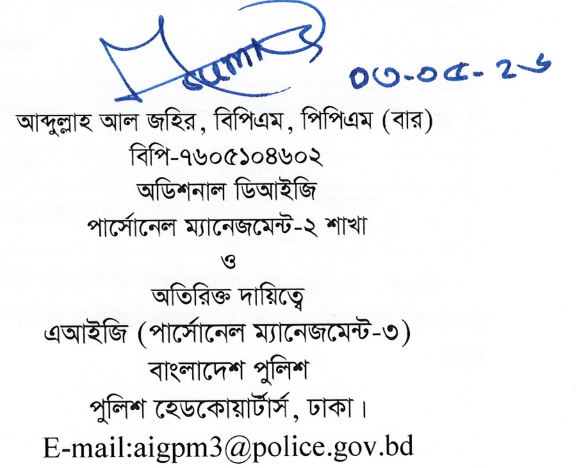 ০৩-০৫-২৬
আব্দুল্লাহ আল জহির, বিপিএম, পিপিএম (বার)
বিপি-৭৬০৫১০৪৬০২
অডিশনাল ডিআইজি
পার্সোনেল ম্যানেজমেন্ট-২ শাখা
ও
অতিরিক্ত দায়িত্বে
এআইজি (পার্সোনেল ম্যানেজমেন্ট-৩)
বাংলাদেশ পুলিশ
পুলিশ হেডকোয়ার্টার্স, ঢাকা।
E-mail:aigpm3@police.gov.bd